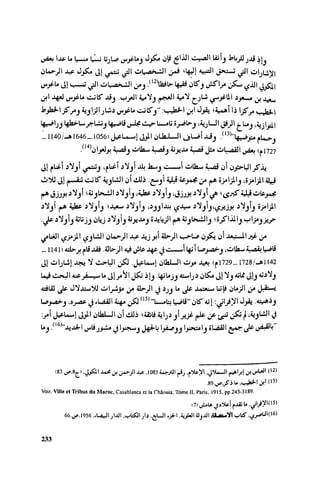 وإذ قدر للرباط وأنفا الصيت الذائع فإن مكول وماغوس صارتا نسيا منسيا ما عدا بعض
الإشارات التي تستحق التنبيه إليها؛ فمن الشخصيات التي تنتمي إلى مكول عبد الرحمان
المكولي الذي سكن مراكش وكان فقيها حافظا(12). ومن الشخصيات التي تنسب إلى ماغوس
سعيد بن مسعود الماغوسي شارح لامية العجم ولامية العرب. وقد كانت ماغوس لعهد ابن
الخطيب مركزا ذا أهمية؛ يقول ابن الخطيب: "وكانت ماغوس دشار الزاوية ومركز الخطوط
المتوازية، وماخ الرفق السارية، وحاضرة تامسنا حيث مجلس قاضيها وتشاجر ساخطها وراضيها
وحمام متوضيها"(13). وقد أضاف السلطان المولى إسماعيل (1056-1646هـ/1140-
1727م) بعض القصبات مثل قصبة مديونة وقصبة سطات وقصبة بولعوان(14).
يذكر الباحثون أن قصبة سطات أسست وسط بلد أولاد أغنام، وتنتمي أولاد أغنام إلى
قبيلة المزامزة، والمزامزة هم من مجموعة قبلية أوسع. ذلك أن الشاوية كانت تنقسم إلى ثلاث
مجموعات قبلية كبرى؛ هي أولاد بورزق، وأولاد عطية، وأولاد الشحاونة؛ أولاد بورزق هم
المزامزة وأولاد بوزيري، وأولاد سيدي بنداوود. وأولاد سعيد؛ وأولاد عطية هم أولاد
حريز ومزاب والمذاكرة؛ والشحاونة هم الزيايدة ومديونة وأولاد زيان وزناتة وأولاد علي.
من غير المستبعد أن يكون صاحب الرحلة أبو زيد عبد الرحمان الشاوي المزمزي الغنامي
قاضيا بقصبة سطات، وخصوصا أنها أسست في عهد عاش فيه الرحالة. فقد قام برحلته (1141 -
1142هـ/1728-1729م) بعيد موت السلطان إسماعيل. لكن الباحث لا يجد إشارات إلى
ولادته وإلى مماته ولا إلى مكان دراسته وزمانها. وإذ نكل الأمر إلى ما سيسفر عنه البحث فيما
يستقبل من الزمان فإننا سنعتمد على ما ورد في الرحلة من مؤشرات للاستدلال على ثقافته
وذهنيته. يقول الإفراني: إنه كان "قاضيا بتامسنا"(15) لكن مهنة القضاء في عصره، وخصوصا
في الشاوية، لم تكن تنبئ عن علم غزير أو دراية فائقة؛ ذلك أن السلطان المولى إسماعيل أمر:
"بالقبض على جميع القضاة وامتحنوا ووصفوا بالجهل وسجنوا في مشور فاس الجديد"(16). وما
(12) العباس بن إبراهيم السملالي، الإعلام، رقم الترجمة 1083، عبد الرحمن بن محمد المكولي، ج8، ص. 83.
(13) ابن الخطيب، ما ذكر، ص. 89.
Voir, Ville et Tribus du Maroc, Casablanca et la Châouïa, Tome II, Paris, 1915, pp.243-3189.
(15) الإفراني، ما تقدم أعلاه في هامش (7).
(16) الناصري، كتاب الاستقصا، الدولة العلوية، الجزء السابع، دار الكتاب، الدار البيضاء، 1956، ص. 66.
233